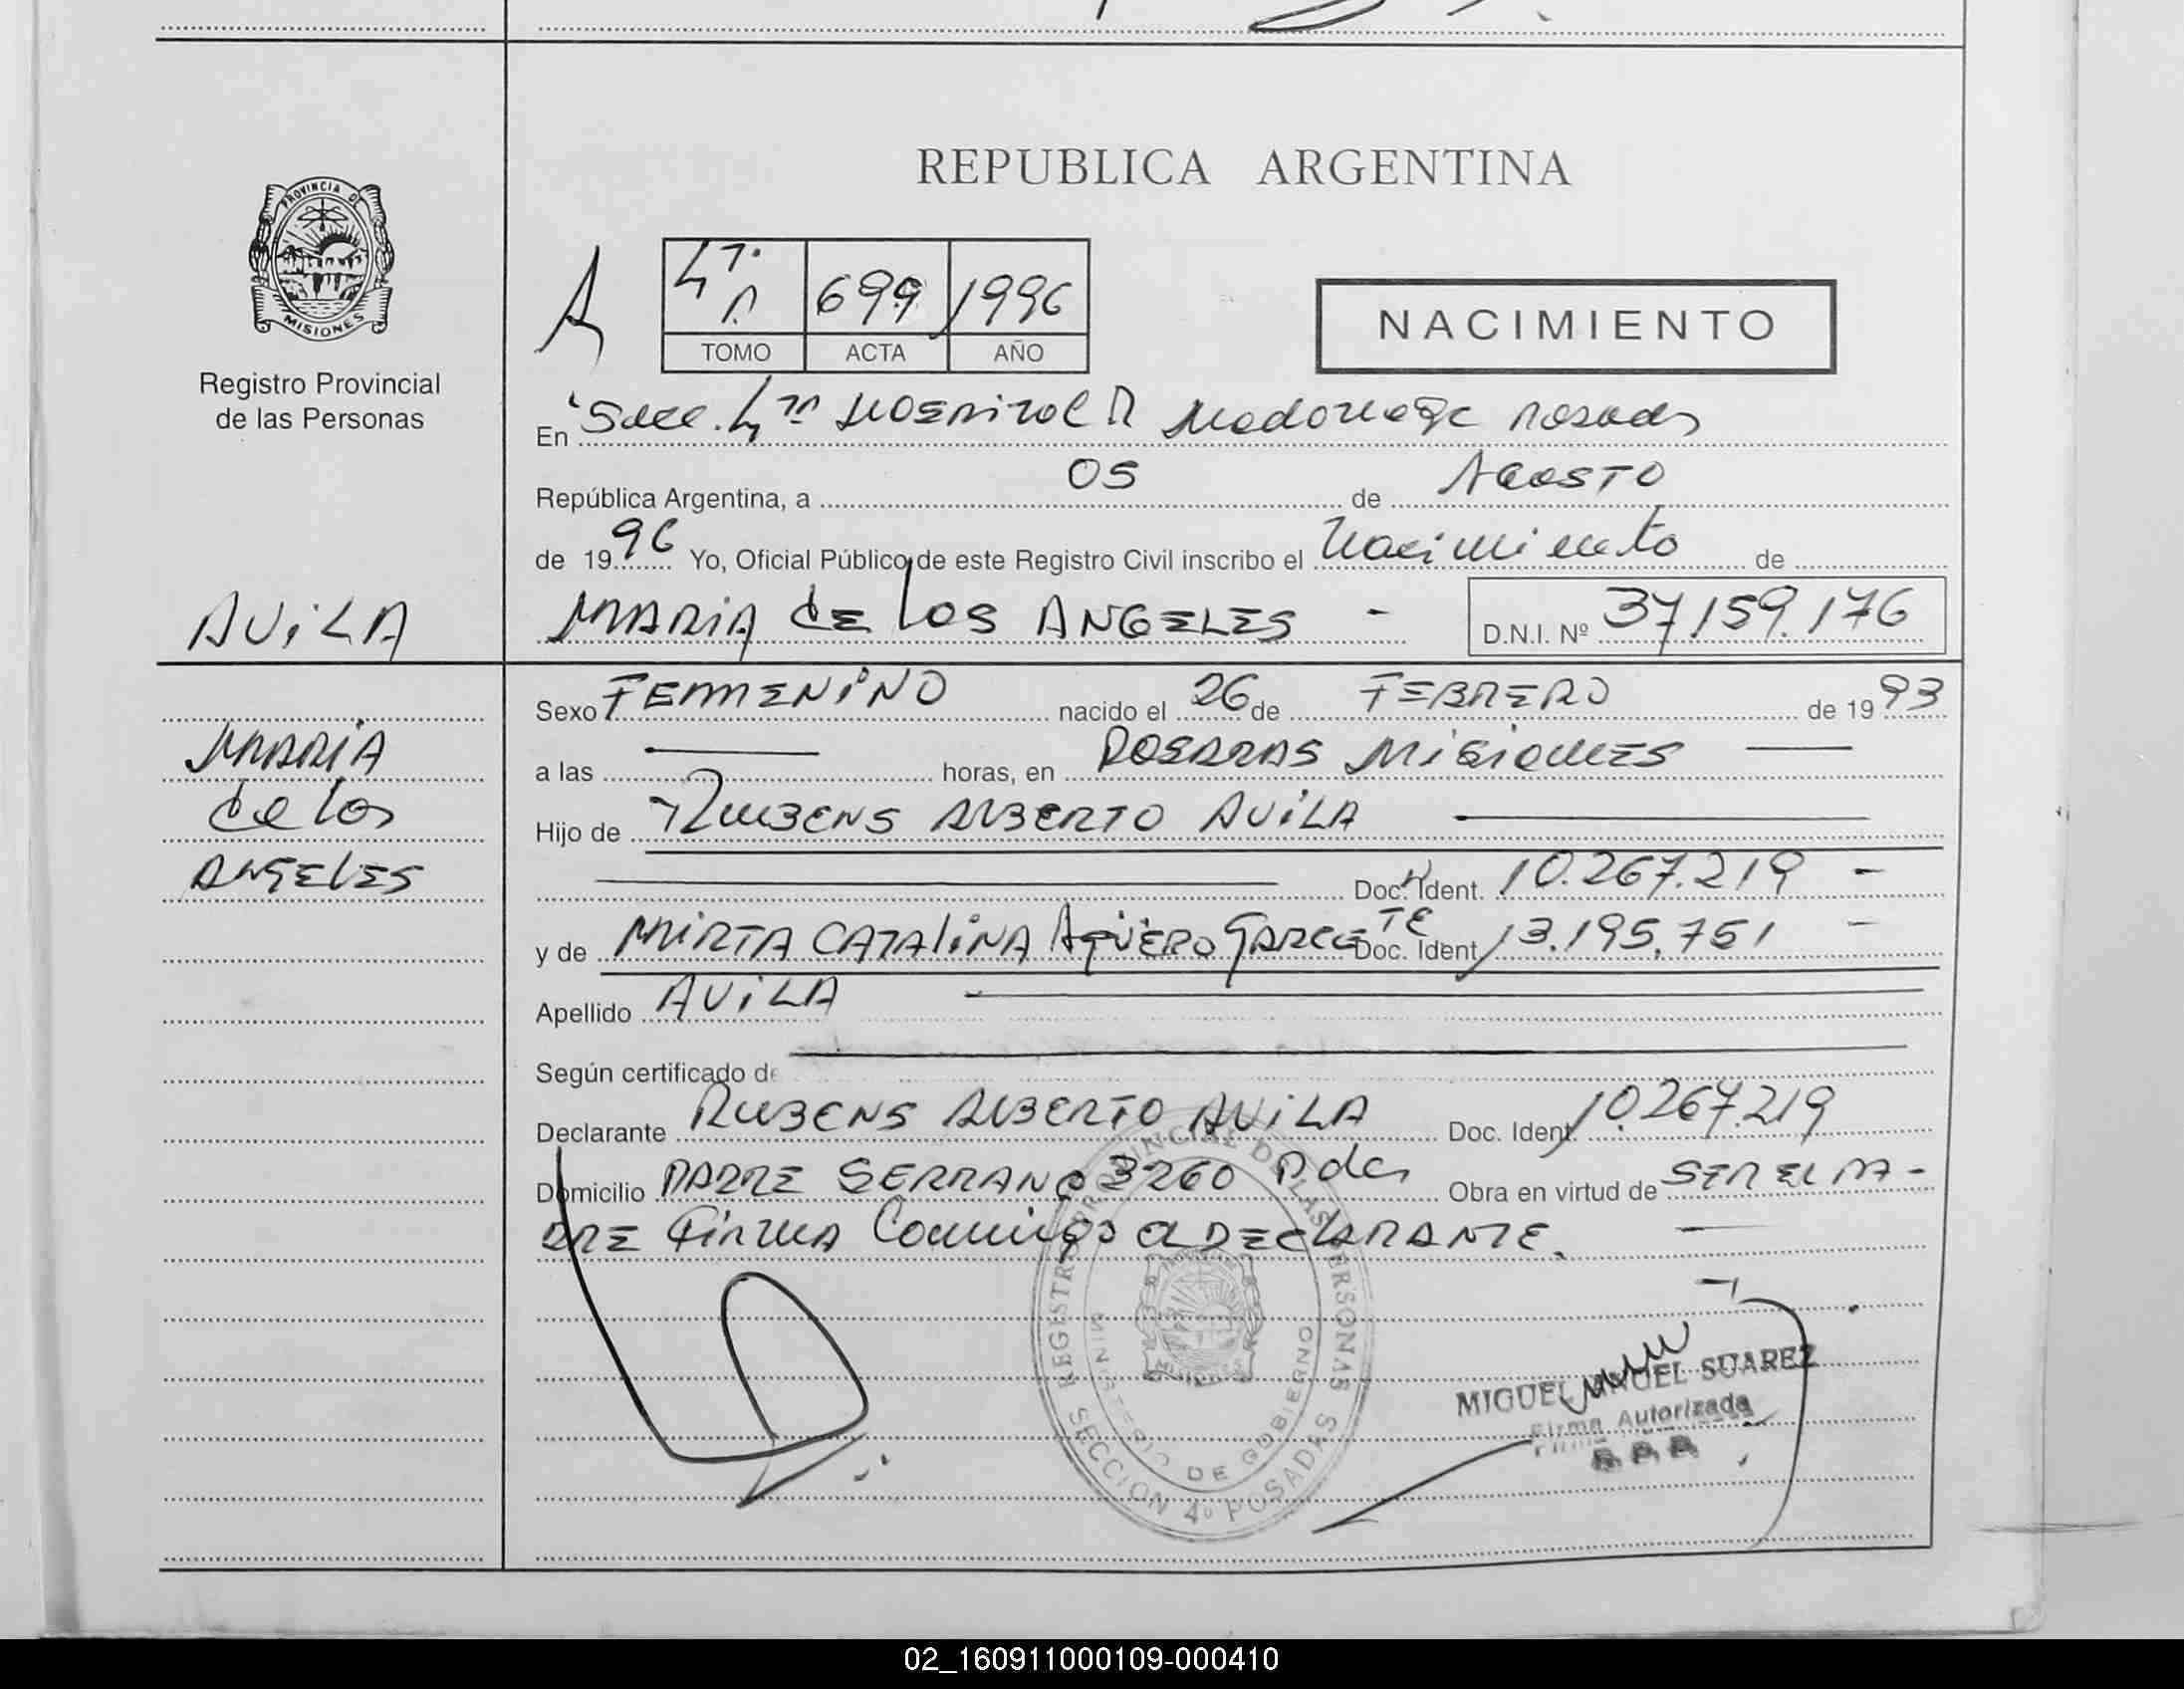 REPUBLICA ARGENTINA
PROVINCIA DE
MISIONES
Registro Provincial
de las Personas
A
4ª 699 1996
TOMO ACTA AÑO
NACIMIENTO
En Secc. 4ta Hospital R Madariaga Posadas
República Argentina, a 05 de AGOSTO
de 1996 Yo, Oficial Público de este Registro Civil inscribo el Nacimiento de
AVILA MARIA de los ANGELES - D.N.I. Nº 37.159.176
Sexo FEMENINO nacido el 26 de FEBRERO de 1993
MARIA
a las horas, en POSADAS MISIONES
de los
Hijo de RUBENS ALBERTO AVILA
ANGELES
Doc. Ident. 10.267.219 -
y de MIRTA CATALINA AGÜERO GARCETE Doc. Ident 13.195.751 -
Apellido AVILA
Según certificado de
Declarante RUBENS ALBERTO AVILA Doc. Ident. 10.267.219
Domicilio PADRE SERRANO 3260 Pdas Obra en virtud de SER EL PA-
DRE FIRMA Conmigo el DECLARANTE.
REGISTRO PROVINCIAL DE LAS PERSONAS
MINISTERIO DE GOBIERNO
SECCION 4º POSADAS
MIGUEL ANGEL SUAREZ
Firma Autorizada
R.P.P.
02_160911000109-000410